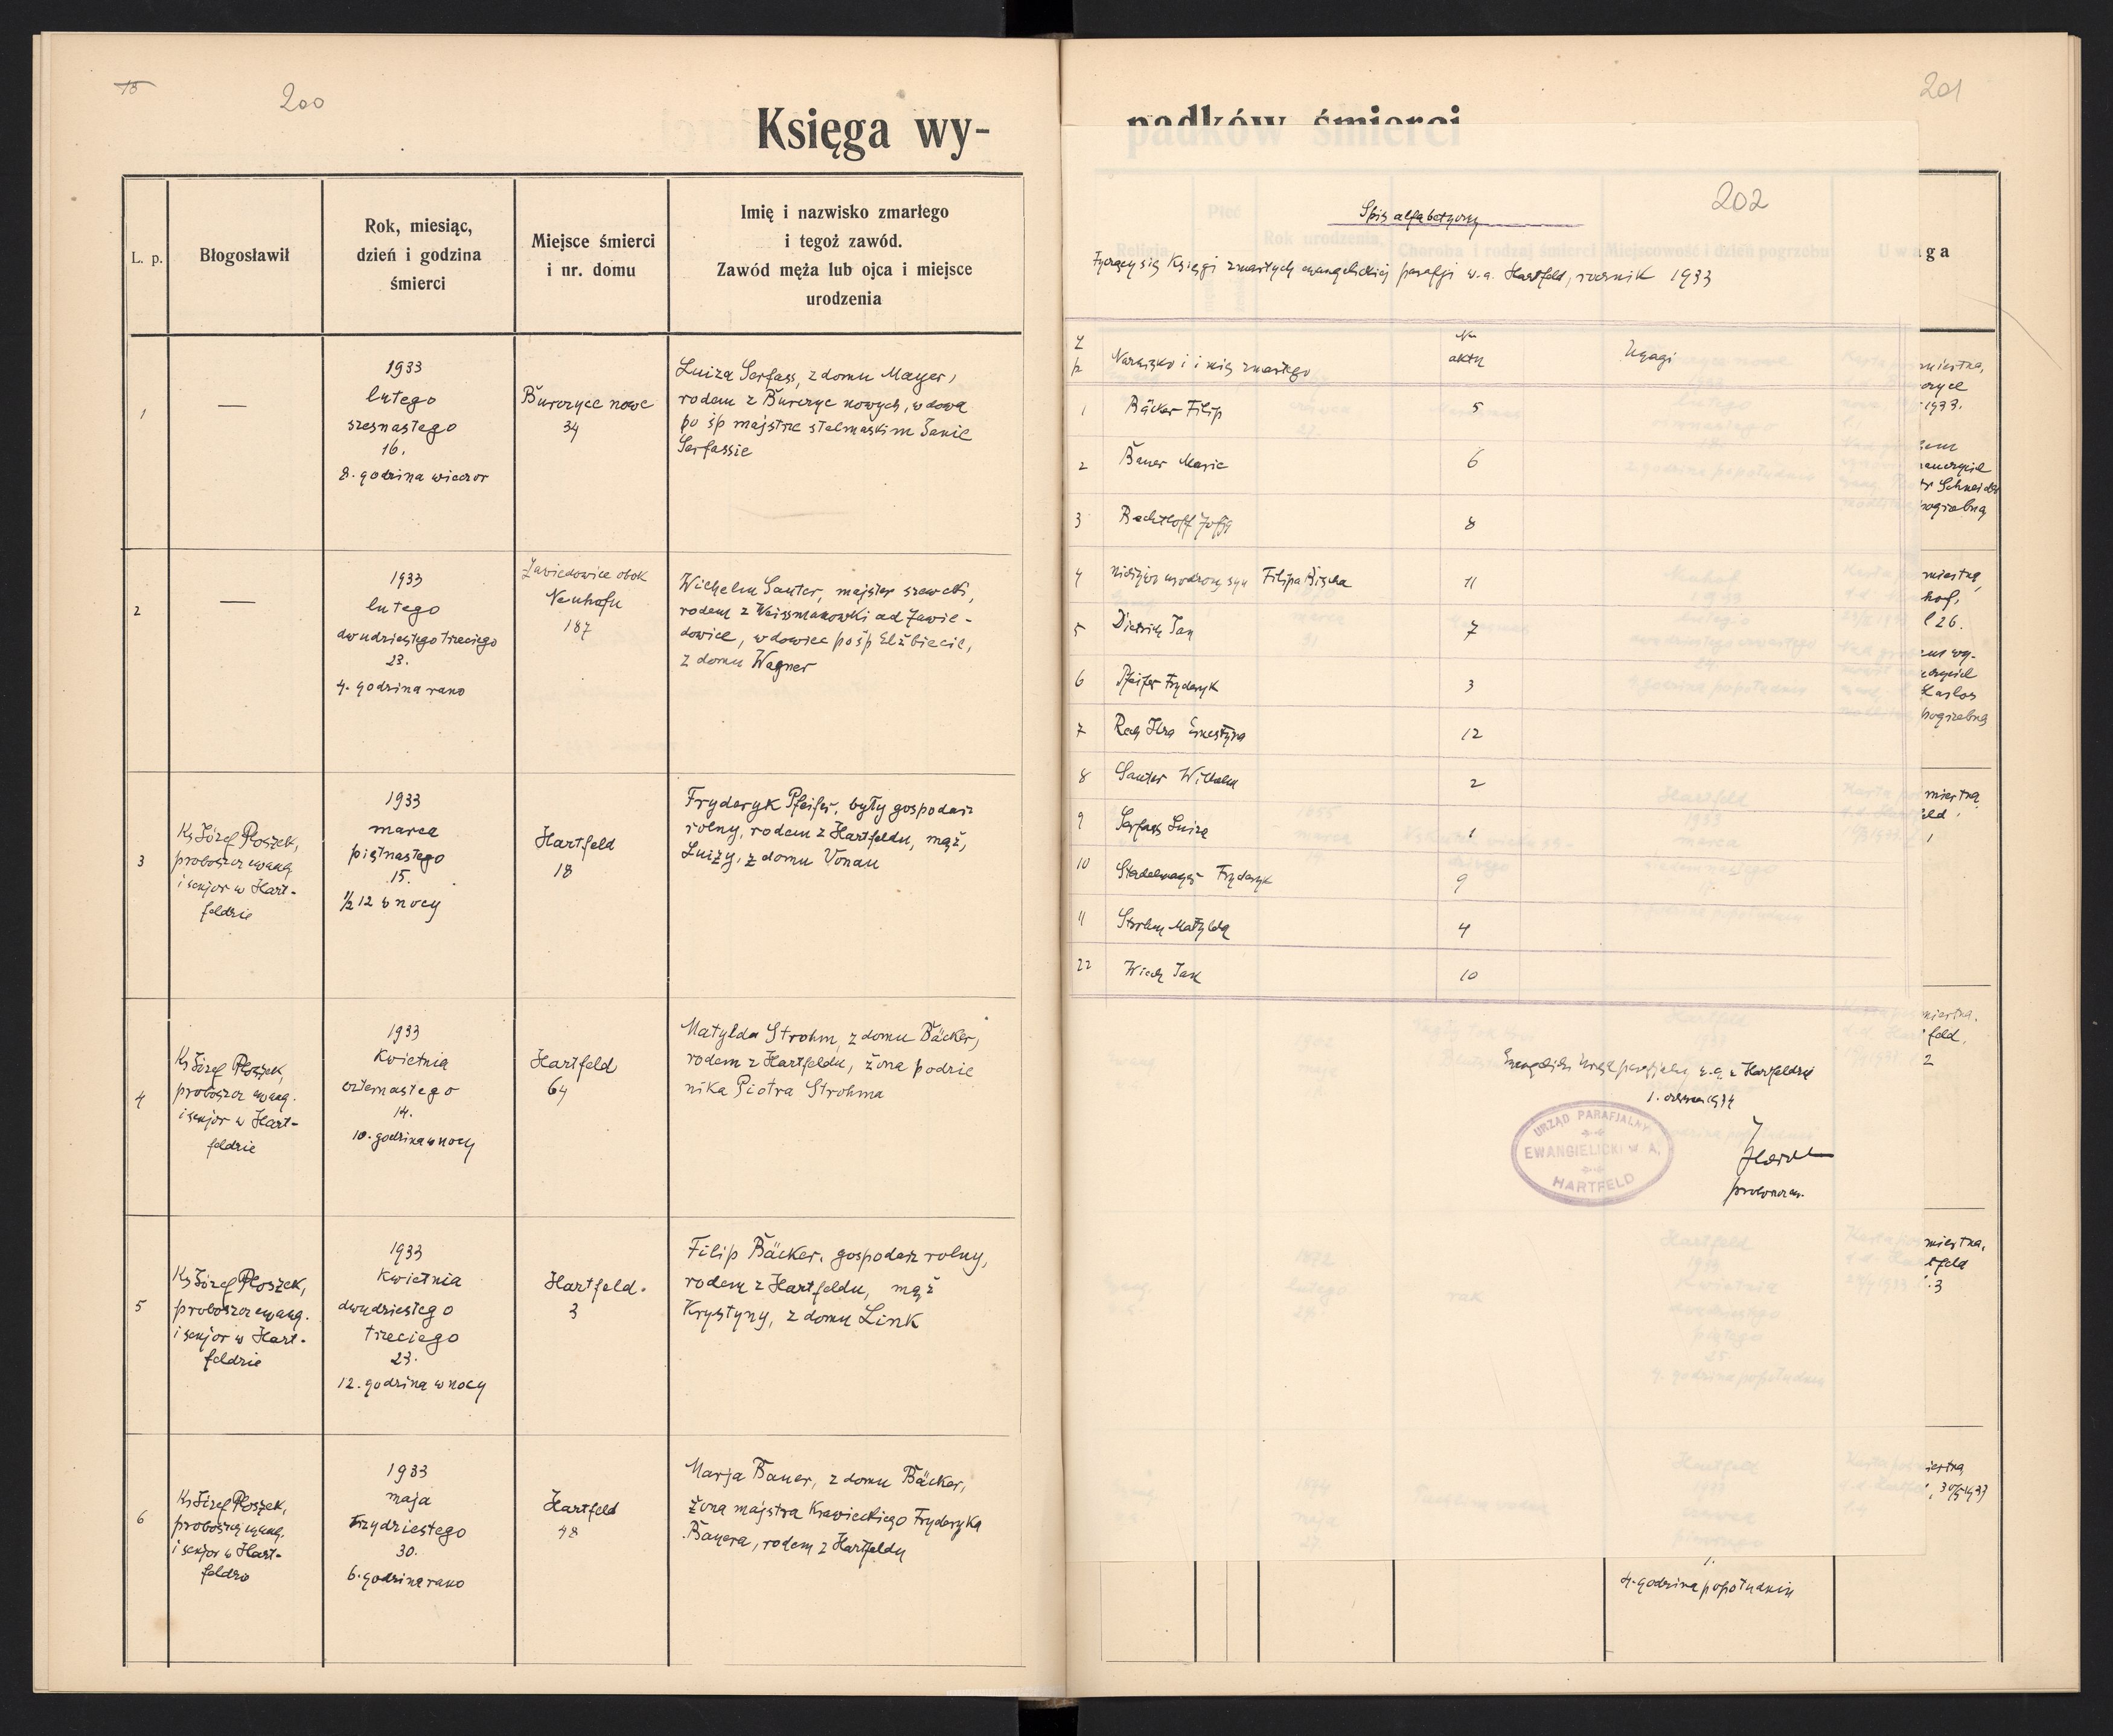 15
200
Księga wy-
L. p.
Błogosławił
Rok, miesiąc,
dzień i godzina
śmierci
Miejsce śmierci
i nr. domu
Imię i nazwisko zmarłego
i tegoż zawód.
Zawód męża lub ojca i miejsce
urodzenia
1
—
1933
lutego
szesnastego
16.
8. godzina wieczor
Burczyce nowe
34
Luiza Serfass, z domu Mayer,
rodem z Burczyc nowych, wdowa
po śp majstrze stelmaskim Janie
Serfassie
2
—
1933
lutego
dwudziestego trzeciego
23.
4. godzina rano
Zawidowice obok
Neuhofu
187
Wilhelm Sauter, majster szewcki,
rodem z Weissmanowki ad Zawi-
dowice, wdowiec po śp Elżbiecie,
z domu Wagner
3
Ks Józef Płoszek,
proboszcz ewang
i senjor w Hart-
feldzie
1933
marca
piętnastego
15.
1/2 12 w nocy
Hartfeld
18
Fryderyk Pfeifer, były gospodarz
rolny, rodem z Hartfeldu, mąż,
Luizy, z domu Vonau
4
Ks Józef Płoszek,
proboszcz ewang.
i senjor w Hart-
feldzie
1933
Kwietnia
czternastego
14.
10. godzina w nocy
Hartfeld
64
Matylda Strohm, z domu Bäcker,
rodem z Hartfeldu, żona podzie
nika Piotra Strohma
5
Ks Józef Płoszek,
proboszcz ewang.
i senjor w Hart-
feldzie
1933
Kwietnia
dwudziestego
trzeciego
23.
12. godzina w nocy
Hartfeld.
3
Filip Bäcker, gospodarz rolny,
rodem z Hartfeldu, mąż
Krystyny, z domu Link
6
Ks Józef Płoszek,
proboszcz ewang.
i senjor w Hart-
feldzie
1933
maja
trzydziestego
30.
6. godzina rano
Hartfeld
48
Marja Bauer, z domu Bäcker,
żona majstra Krawieckiego Fryderyka
Bauera, rodem z Hartfeldu
201
padków śmierci
202
Spis alfabetyczny
tyczący się Księgi zmarłych ewangelickiej parafji w. a. Hartfeld, rocznik 1933
L
p
Nazwisko i imię zmarłego
Nr
aktu
Uwagi
1 Bäcker Filip 5
2 Bauer Marie 6
3 Bechtloff Zofja 8
4 Nieżywo urodzony syn Filipa 11
5 Dietrich Jan 7
6 Pfeifer Fryderyk 3
7 Ernestyna 12
8 Sauter Wilhelm 2
9 Serfass Luiza 1
10 Stadelmayer Fryderyk 9
11 Strohm Matylda 4
Jan 10
Ewangelicki Urząd parafjalny w. a. z Hartfeldzie
1. czerwca 1934
URZĄD PARAFJALNY
EWANGIELICKI w A.
HARTFELD
proboszcz.
ga
1933.
Schneider
pogrzebną
miestną
hof,
l 26.
Karlos
pogrzebną
miertną
1
feld,
2
miestna,
feld
3
1.
4. godzina popołudniu